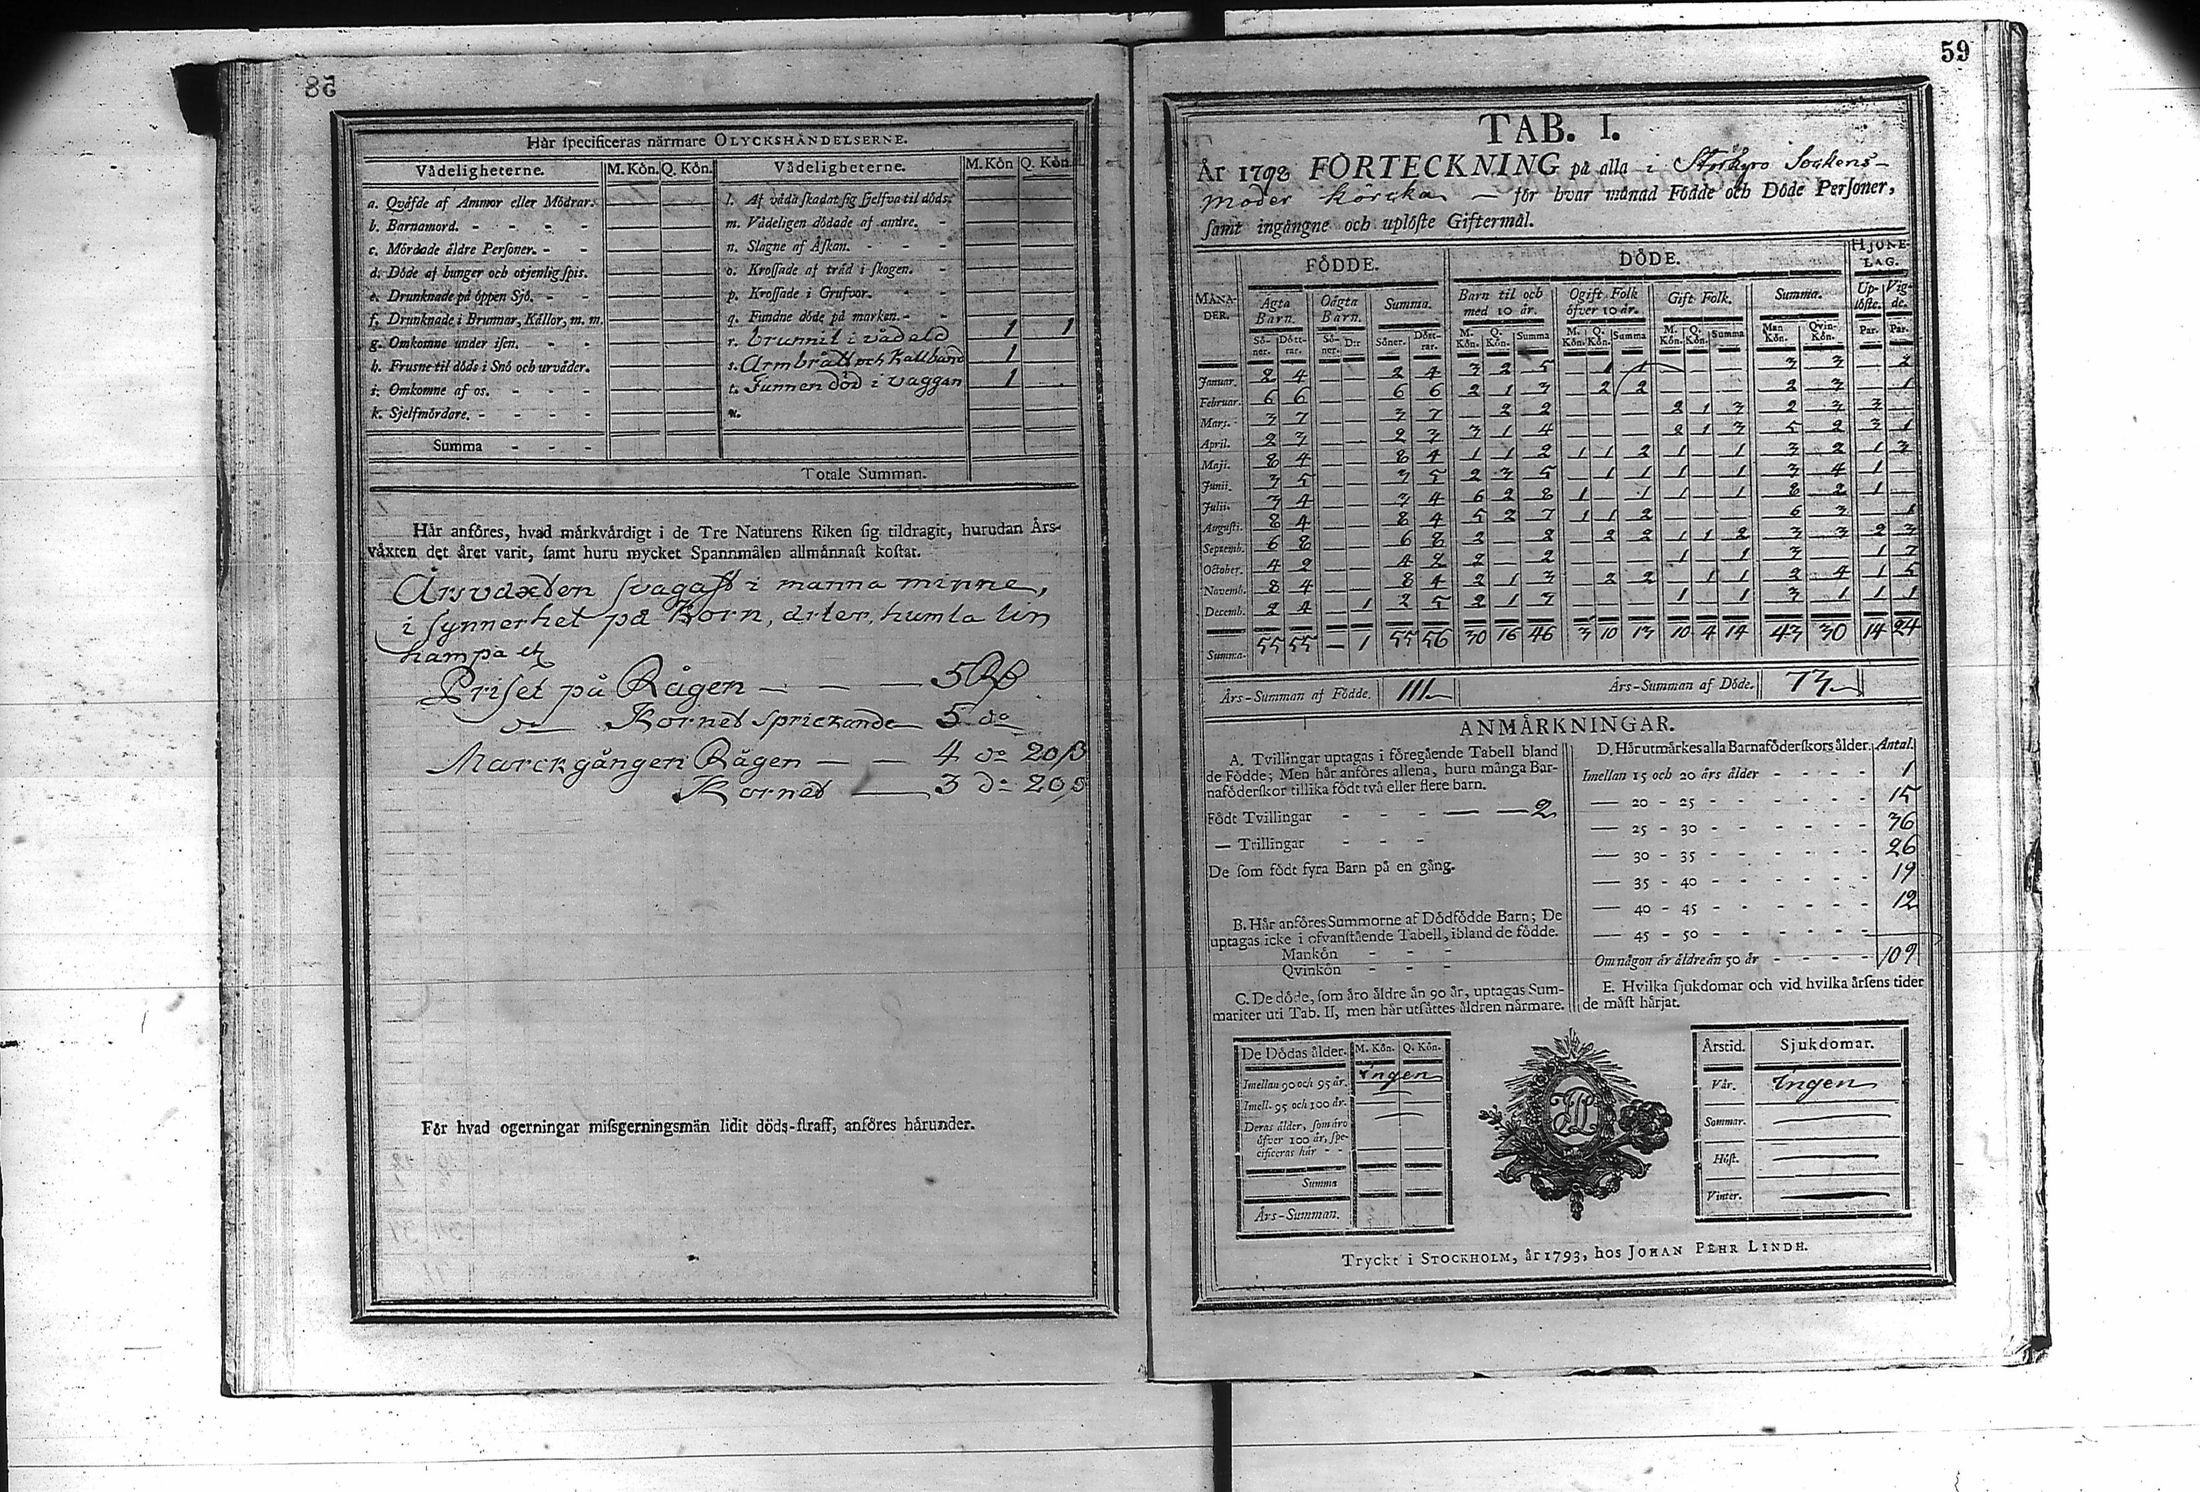 58
Här specificeras närmare OLYCKSHÄNDELSERNE.
Vådeligheterne. M. Kön. Q. Kön. Vådeligheterne. M. Kön Q. Kön.
a. Qväfde af Ammor eller Mödrar. l. Af våda skadat sig sjelfva til döds.
b. Barnamord. - - - - m. Vådeligen dödade af andre. -
c. Mördade äldre Personer. - - n. Slagne af Åskan. - - -
d. Döde af hunger och otjenlig spis. o. Krossade af träd i skogen. -
e. Drunknade på öppen Sjö. - - p. Krossade i Grufvor. - -
f. Drunknade i Brunnar, Källor, m. m. q. Fundne döde på marken. - -
g. Omkomne under isen. - - r. brunnit i vådeld 1 1
h. Frusne til döds i Snö och urväder. s. Armbrått och Kallbrand 1
i. Omkomne af os. - - - t. Funnen död i vaggan 1
k. Sjelfmördare. - - - - u.
Summa - - -
Totale Summan.
Här anföres, hvad märkvärdigt i de Tre Naturens Riken sig tildragit, hurudan Års-
växten det året varit, samt huru mycket Spannmålen allmännast kostat.
Årsväxten svagast i manna minne,
i synnerhet på Korn, ärter, humla lin
hampa etc
Priset på Rågen — — — 5 Rd
do Kornet sprickande — 5 do
Marckgången Rågen — — 4 do 20 β
Kornet — 3 do 20 β
För hvad ogerningar missgerningsmän lidit döds-straff, anföres härunder.
59
TAB. I.
År 1798 FÖRTECKNING på alla i Storkyro Sockens-
moder körcka — för hvar månad Födde och Döde Personer,
samt ingångne och uplöste Giftermål.
MÅNA-DER. FÖDDE. DÖDE. HJONE-LAG.
Ägta Barn. Oägta Barn. Summa. Barn til och med 10 år. Ogift Folk öfver 10 år. Gift Folk. Summa. Up-löste. Vig-de.
Sö-ner. Dött-rar. Sö-ner. D:r Söner. Dött-rar. M. Kön. Q. Kön. Summa M. Kön. Q. Kön. Summa M. Kön. Q. Kön. Summa Man Kön. Qvin-Kön. Par. Par.
Januar. 2 4 — — 2 4 3 2 5 — 1 1 — — — 3 3 — 2
Februar. 6 6 — — 6 6 2 1 3 — 2 2 — — — 2 3 — 1
Mars. 3 7 — — 3 7 — 2 2 — — — 2 1 3 2 3 3 —
April. 2 3 — — 2 3 3 1 4 — — — 2 1 3 5 2 3 1
Maji. 8 4 — — 8 4 1 1 2 1 1 2 1 — 1 3 2 1 3
Junii. 3 5 — — 3 5 2 3 5 — 1 1 1 — 1 3 4 1 —
Julii. 3 4 — — 3 4 6 2 8 1 — 1 1 — 1 8 2 1 —
Augusti. 8 4 — — 8 4 5 2 7 1 1 2 — — — 6 3 — 1
Septemb. 6 8 — — 6 8 2 — 2 — 2 2 1 1 2 3 3 2 3
October. 4 2 — — 4 2 2 — 2 — — — 1 — 1 3 — 1 7
Novemb. 8 4 — — 8 4 2 1 3 — 2 2 — 1 1 2 4 1 5
Decemb. 2 4 — 1 2 5 2 1 3 — — — 1 — 1 3 1 1 1
Summa. 55 55 — 1 55 56 30 16 46 3 10 13 10 4 14 43 30 14 24
Års-Summan af Födde. 111 Års-Summan af Döde. 73
ANMÄRKNINGAR.
A. Tvillingar uptagas i föregående Tabell bland
de Födde; Men här anföres allena, huru många Bar-
naföderskor tillika födt två eller flere barn.
Födt Tvillingar - - - — — 2
— Trillingar - - -
De som födt fyra Barn på en gång.
B. Här anföres Summorne af Dödfödde Barn; De
uptagas icke i ofvanstående Tabell, ibland de födde.
Mankön - - -
Qvinkön - - -
C. De döde, som äro äldre än 90 år, uptagas Sum-
mariter uti Tab. II, men här utsättes åldren närmare.
D. Här utmärkes alla Barnaföderskors ålder. Antal.
Imellan 15 och 20 års ålder - - - - 1
— 20 - 25 - - - - - - 15
— 25 - 30 - - - - - - 36
— 30 - 35 - - - - - - 26
— 35 - 40 - - - - - - 19
— 40 - 45 - - - - - - 12
— 45 - 50 - - - - - - —
Om någon är äldre än 50 år - - - - 109
E. Hvilka sjukdomar och vid hvilka årsens tider
de mäst härjat.
De Dödas ålder. M. Kön. Q. Kön.
Imellan 90 och 95 år. ingen
Imell. 95 och 100 år.
Deras ålder, som äro
öfver 100 år, spe-
cificeras här - -
Summa
Års-Summan.
Årstid. Sjukdomar.
Vår. ingen
Sommar.
Höst.
Vinter.
Tryckt i STOCKHOLM, år 1793, hos JOHAN PEHR LINDH.